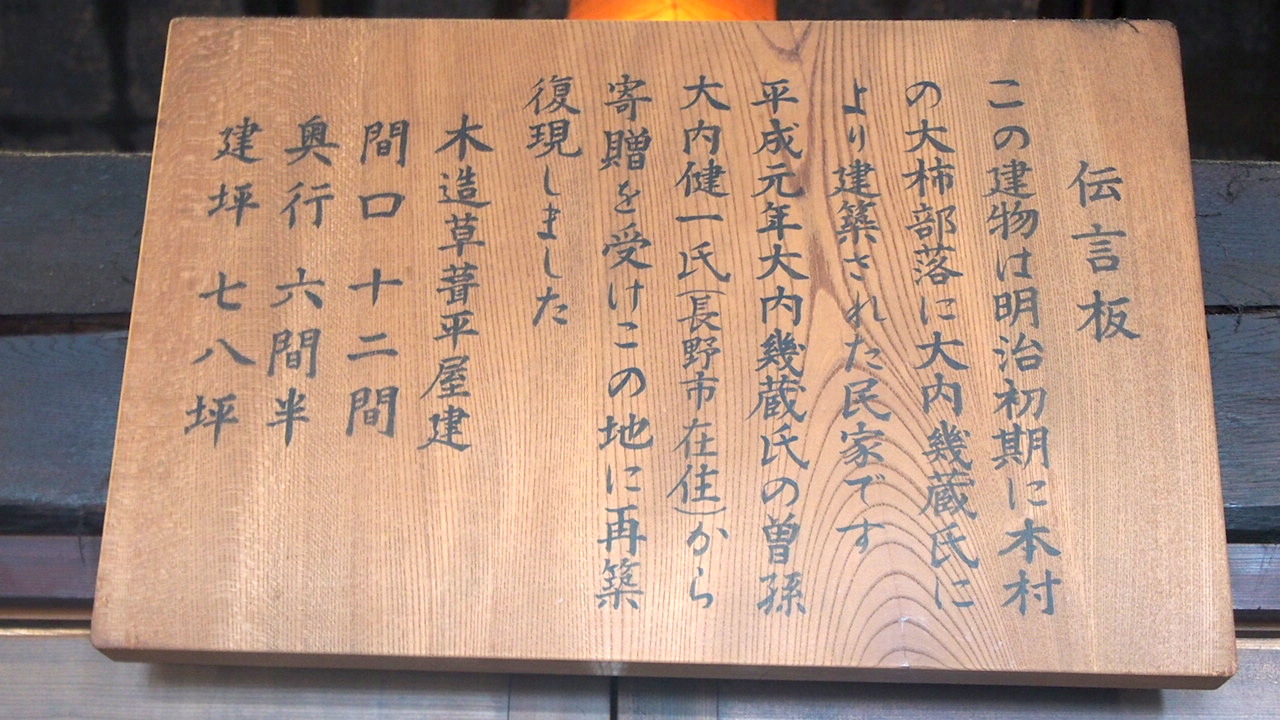 伝言板
この建物は明治初期に本村
の大柿部落に大内幾蔵氏に
より建築された民家です
平成元年大内幾蔵氏の曽孫
大内健一氏(長野市在住)から
寄贈を受けこの地に再築
復現しました
木造草葺平屋建
間口 十二間
奥行 六間半
建坪 七八坪